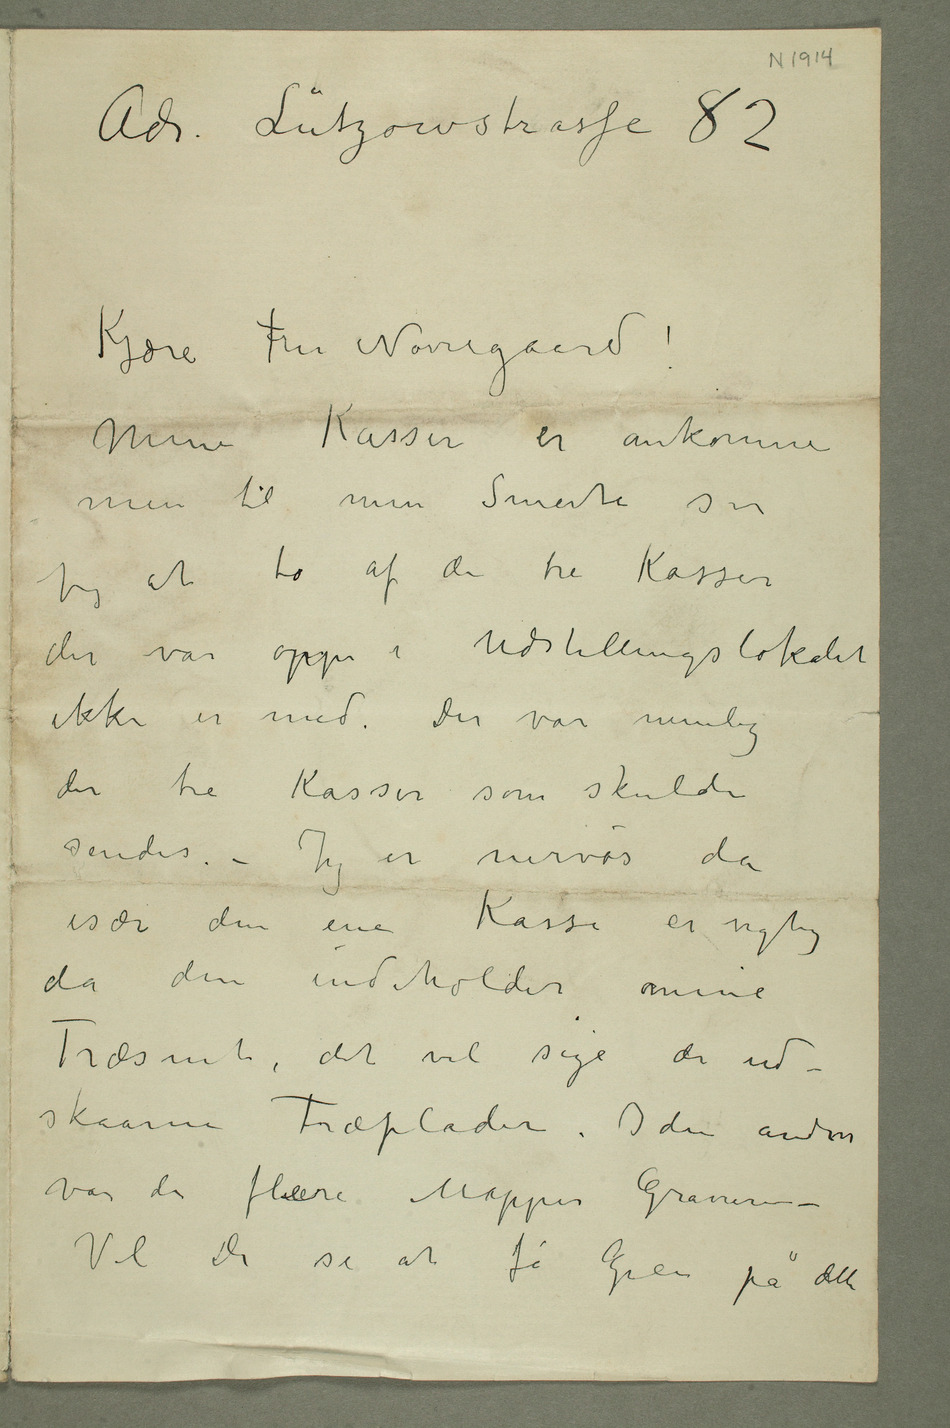 N 1914
Adr. Lützowstrasse 82
Kjære Fru Nørregaard!
Mine Kasser er ankomne
men til min Smerte ser
jeg at to af de tre Kasser
der var oppe i Udstillingslokalet
ikke er med. Der var nemlig
der tre Kasser som skulde
sendes. – Jeg er nervøs da
især den ene Kasse er vigtig
da den indeholder mine
Træsnit, det vil sige de ud-
skaarne Træplader. I den anden
var der flere Mapper Graveren–
Vil De se at få Greie på dette